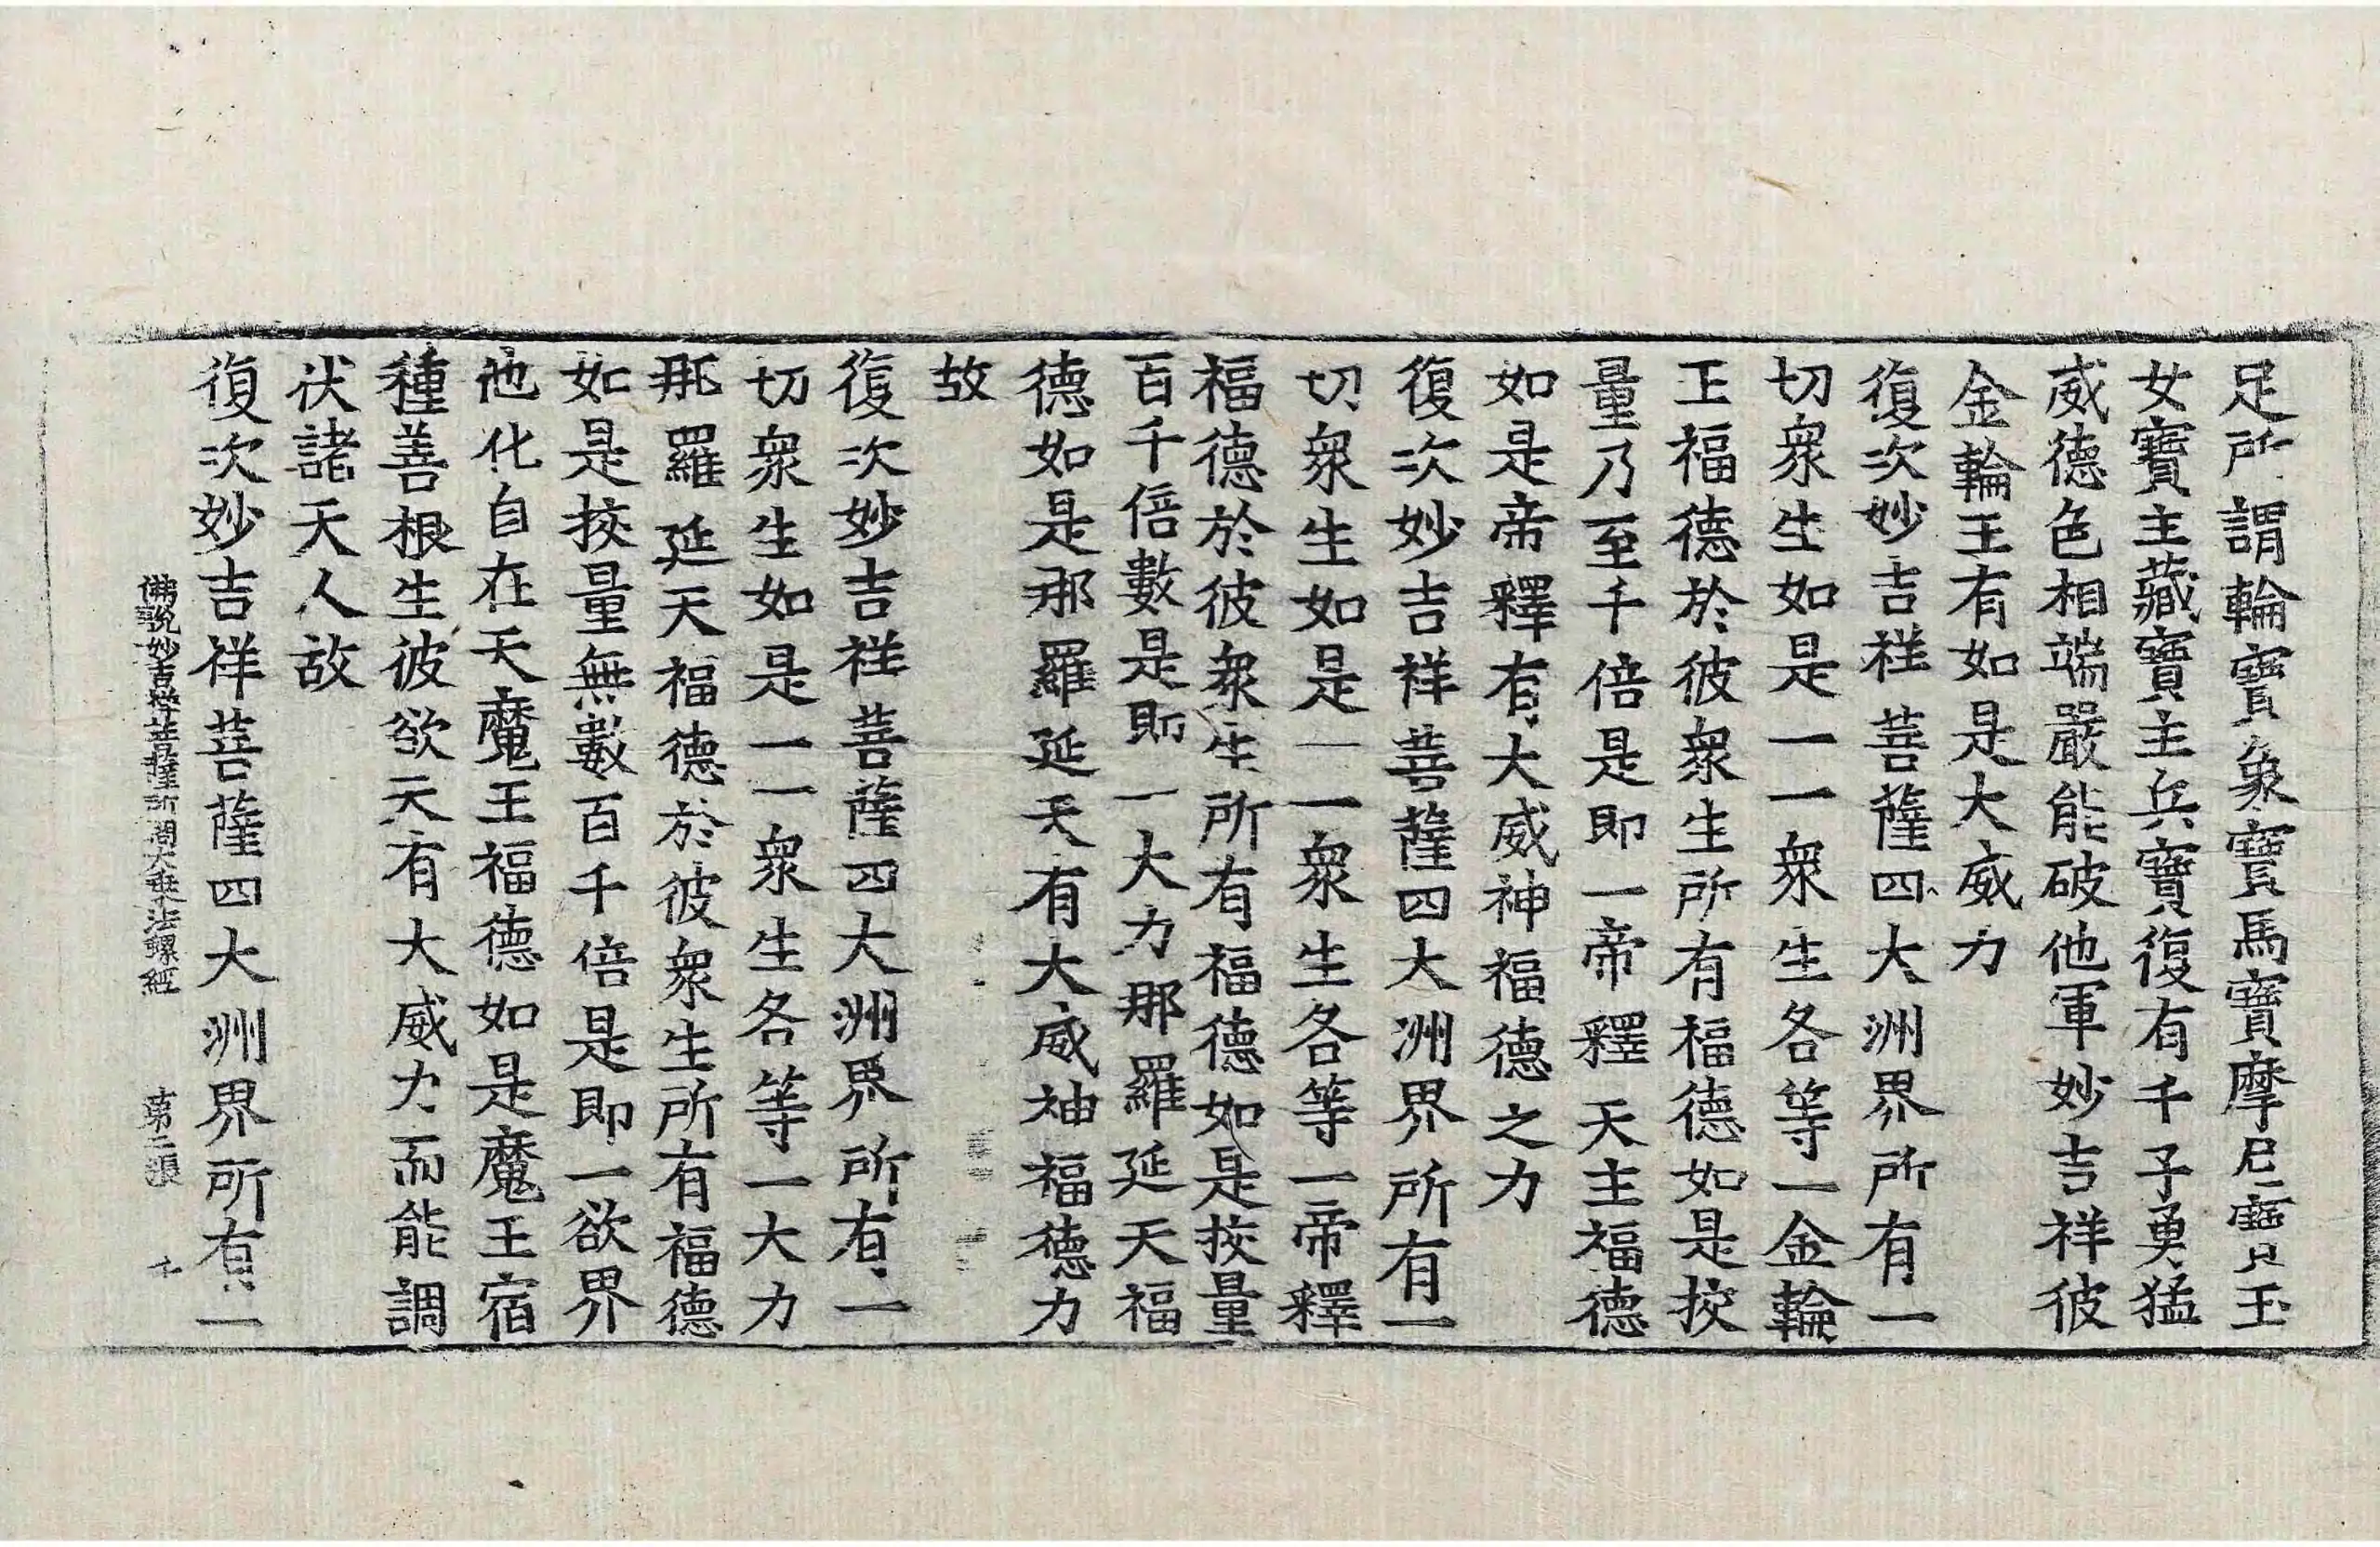 足所謂輪寶象寶馬寶摩尼寶玉
女寶主藏寶主兵寶復有千子勇猛
威德色相端嚴能破他軍妙吉祥彼
金輪王有如是大威力
復次妙吉祥菩薩四大洲界所有一
切衆生如是一一衆生各等一金輪
王福德於彼衆生所有福德如是挍
量乃至千倍是即一帝釋天主福德
如是帝釋有大威神福德之力
復次妙吉祥菩薩四大洲界所有一
切衆生如是一一衆生各等一帝釋
福德於彼衆生所有福德如是挍量
百千倍數是即一大力那羅延天福
德如是那羅延天有大威神福德力
故
復次妙吉祥菩薩四大洲界所有一
切衆生如是一一衆生各等一大力
那羅延天福德於彼衆生所有福德
如是挍量無數百千倍是即一欲界
他化自在天魔王福德如是魔王宿
種善根生彼欲天有大威力而能調
伏諸天人故
復次妙吉祥菩薩四大洲界所有一
佛說妙吉祥菩薩所問大乘法螺經 第二張 千